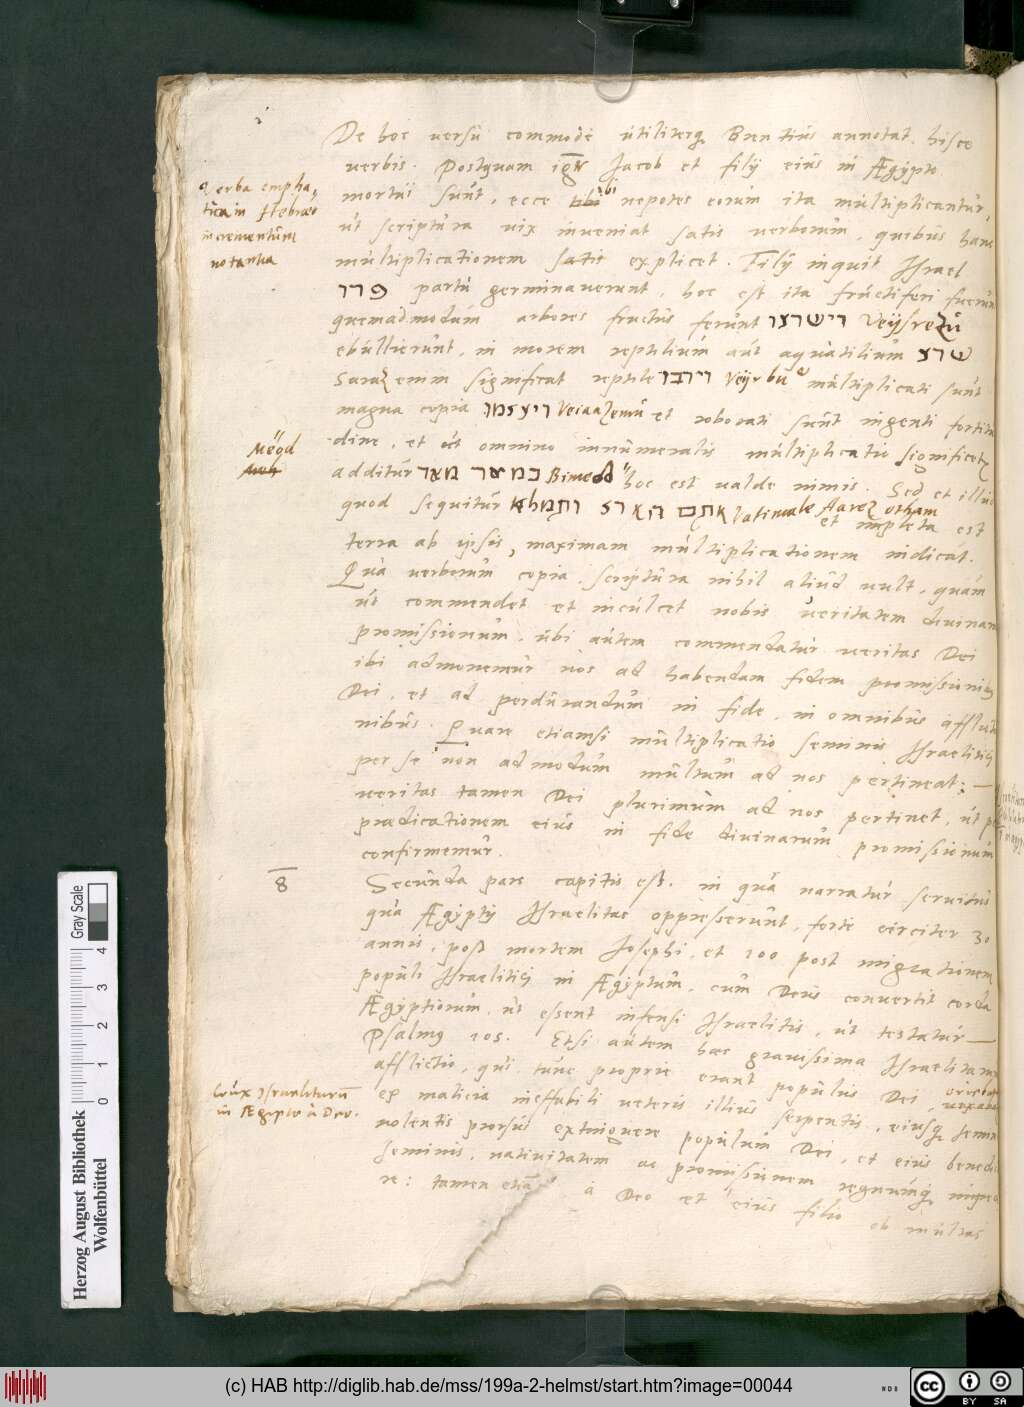 De hoc versu commode utiliterq̃ Brentius annotat. hisce
verbis. Postquam igr̃ Jacob et filij eius in Ægypto
Verba empha,
tica in Hebræo
incrementum
notantia
mortui sunt, ecce tibi ibi nepotes eorum ita multiplicantur,
ut scriptura vix inveniat satis verborum, quibus hanc
multiplicationem satis explicet. Filij inquit Israel
פרו partu germinaverunt, hoc est ita fructiferi fuerunt
quemadmodum arbores fructus ferunt וישרצו Veijsrezu
ebullierunt, in morem reptilium aut aquatilium שרצ
Saraz enim significat reptile וירבו Veijrbu multiplicati sunt
magna copia ויעצמו Veiaazemu et roborati sunt ingenti fortitu
Meod
dine, et ut omnino innumerabilis multiplicatio significet̃
additur במאד מאד Bimeod hoc est valde nimis. Sed et illud
quod sequitur ותמלא הארצ אתם Vatimale Aarez otham
et impleta est
terra ab ipsis, maximam multiplicationem indicat.
Qua verborum copia, scriptura nihil aliud vult, quam
ut commendet et inculcet nobis veritatem divinam
promissionum, ubi autem commendatur veritas Dei
ibi admonemur nos ad habendam fidem promissionibus
Dei, et ad perdurandum in fide, in omnibus afflictio
nibus. Quare etiamsi multiplicatio seminis Israelitici
per se non admodum multum ad nos pertineat:
veritas tamen Dei plurimum ad nos pertinet, ut p
prædicationem eius in fide divinarum promissionum
confirmemur.
8
Secunda pars capitis est. in qua narratur servitus
qua Ægyptij Israelitas oppresserunt, forte circiter 30
annis, post mortem Josephi, et 100 post migrationem
populi Israelitici in Ægyptum, cum Deus convertit corda
Ægyptiorum, ut essent infensi Israelitis, ut testatur
Psalmus 105. Etsi autem hæc gravissima Israelitarum
afflictio, qui tunc proprie erant populus Dei, oriebatur
Crux Israelitarum
in Ægypto à Deo.
ex malicia ineffabili veteris illius serpentis, eiusq̃ semin
nolentis prorsus extinguere populum Dei, et eius benedi
seminis, nativitatem ac promissionem regnumq̃
re: tamen etiã à Deo et eius filio ob multas
Herzog August Bibliothek
Wolfenbüttel
Gray Scale
0 1 2 3 4
(c) HAB http://diglib.hab.de/mss/199a-2-helmst/start.htm?image=00044
cc BY SA